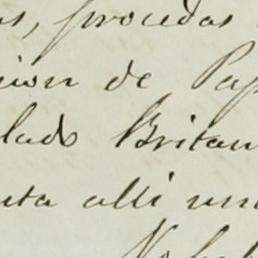 os, procedas
cion de Pap
lado Britan
nta alli un